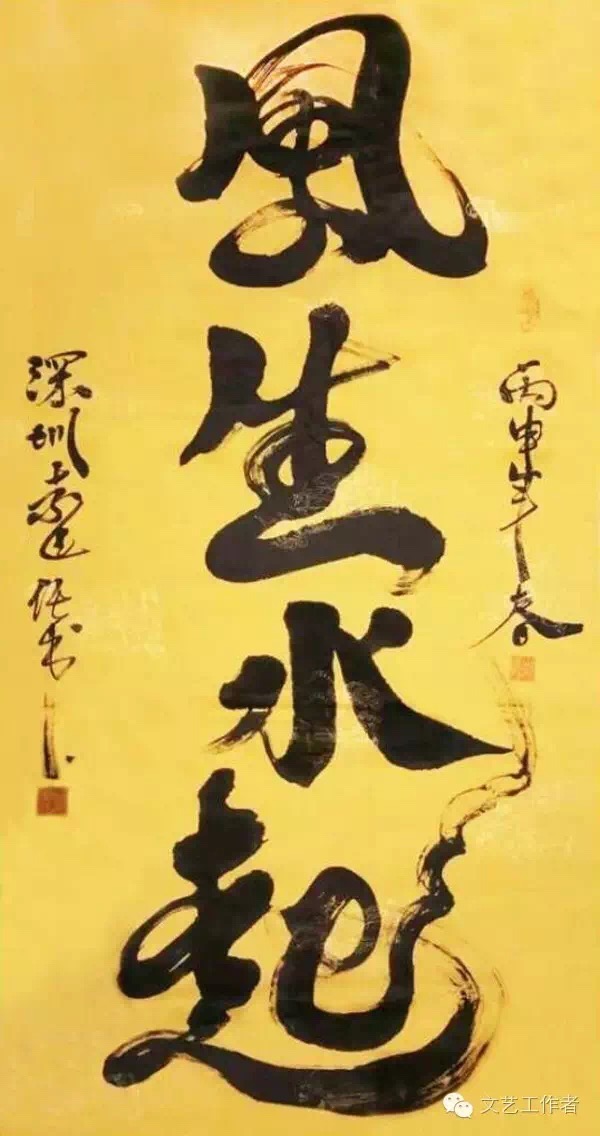 风生水起
丙申年春
深圳
书
文艺工作者